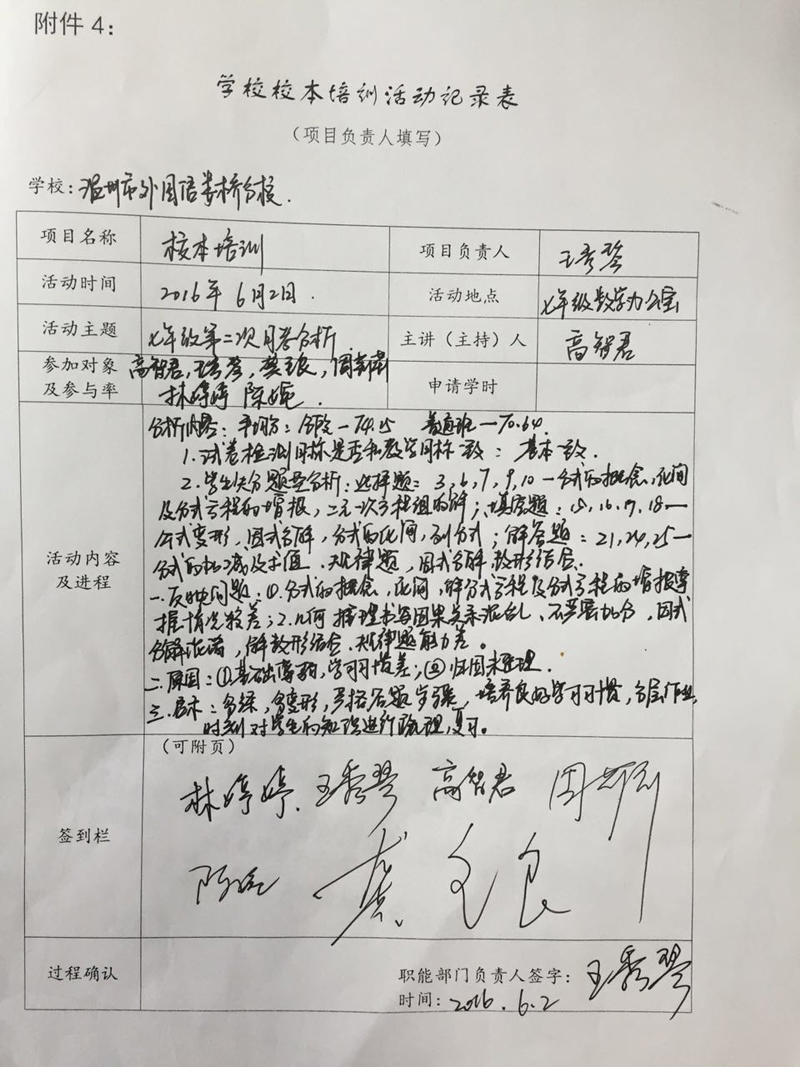 附件 4：
学校校本培训活动记录表
（项目负责人填写）
学校：温州市外国语娄桥分校.
项目名称 校本培训 项目负责人 王秀琴
活动时间 2016年6月2日. 活动地点 七年级数学办公室
活动主题 七年级第二次月卷分析. 主讲（主持）人 高智君
参加对象 高智君,王秀琴,龚良,周
及参与率 林婷婷 陈 申请学时
活动内容
及进程
分析内容：平均分：—74.15 普通班—70.64.
1.试卷检测目标是否和教学目标一致：基本一致.
2.学生失分题型分析：选择题：3,6,7,9,10—分式的概念,化简
及分式方程的增根,二元一次方程组的解；填空题：15,16,17,18—
公式变形,因式分解,分式的化简,列分式；解答题：21,24,25—
分式的加减及求值.规律题,因式分解,数形结合.
一.反映问题：①.分式的概念,化简,解分式方程及分式方程的增根掌
握情况较差；2.几何推理书写因果关系混乱、不严密,因式
分解,解数形结合、规律题能力差。
二.原因：①基础薄弱,学习习惯差；②归因未整理.
三.启示：多练,多变形,严格答题步骤,培养良好学习习惯,分层作业,
时刻对学生的知识进行梳理,复习。
（可附页）
签到栏
林婷婷. 王秀琴 高智君 周
陈 龚 良
过程确认
职能部门负责人签字：王秀琴
时间：2016.6.2